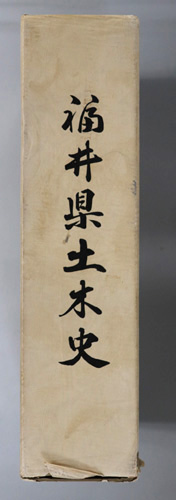 福井県土木史